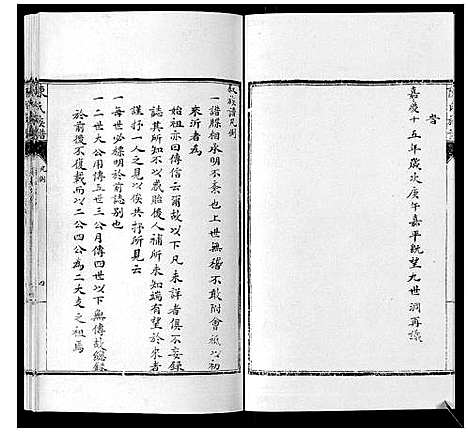 嘉慶十五年歲次庚午嘉平既望九世洞再識
族譜凡例
一譜牒相承明不紊也上世無稽不敢附會祇以初
來沂者為
始祖亦曰傳信云爾故以下凡未詳者俱不妄錄
誌其所知不以感貽後人補所未知端有望於來者
謹抒一人之見以俟共抒所見云
一每世必標明於前誌別也
一二世大公用傳五世三公月傳四世以下無傳故總錄
於前後不復載而以二公四公為二大支之祖焉
凡例